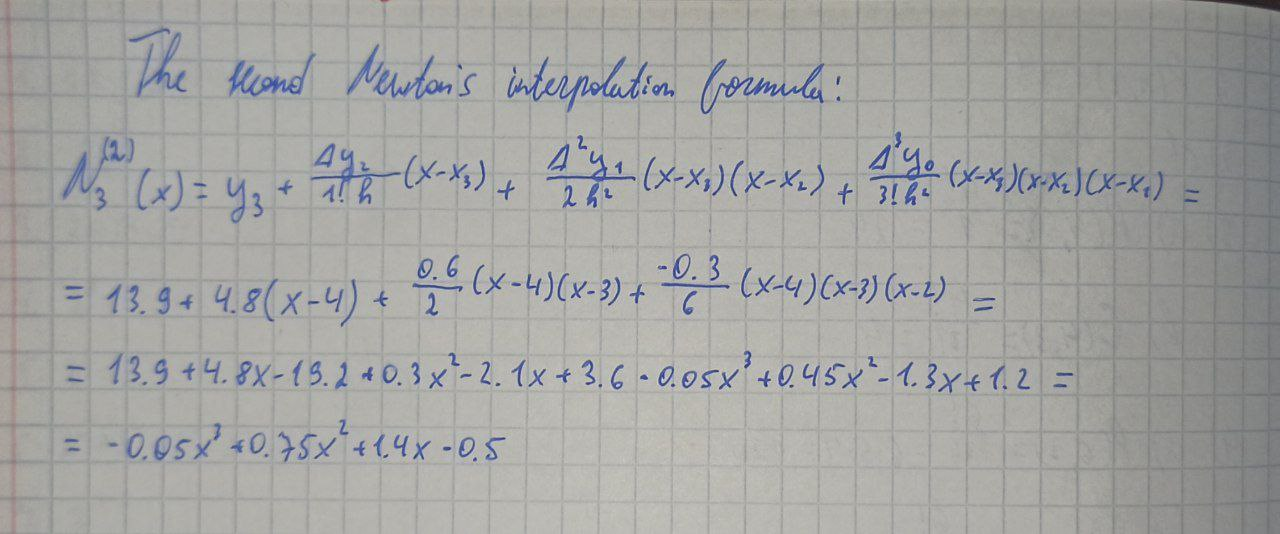 The second Newton's interpolation formula:
N₃⁽²⁾(x) = y₃ + Δy₂/1!h (x-x₃) + Δ²y₁/2h² (x-x₃)(x-x₂) + Δ³y₀/3!h² (x-x₃)(x-x₂)(x-x₁) =
= 13.9 + 4.8(x-4) + 0.6/2 (x-4)(x-3) + -0.3/6 (x-4)(x-3)(x-2) =
= 13.9 + 4.8x - 19.2 + 0.3x² - 2.1x + 3.6 - 0.05x³ + 0.45x² - 1.3x + 1.2 =
= -0.05x³ + 0.75x² + 1.4x - 0.5